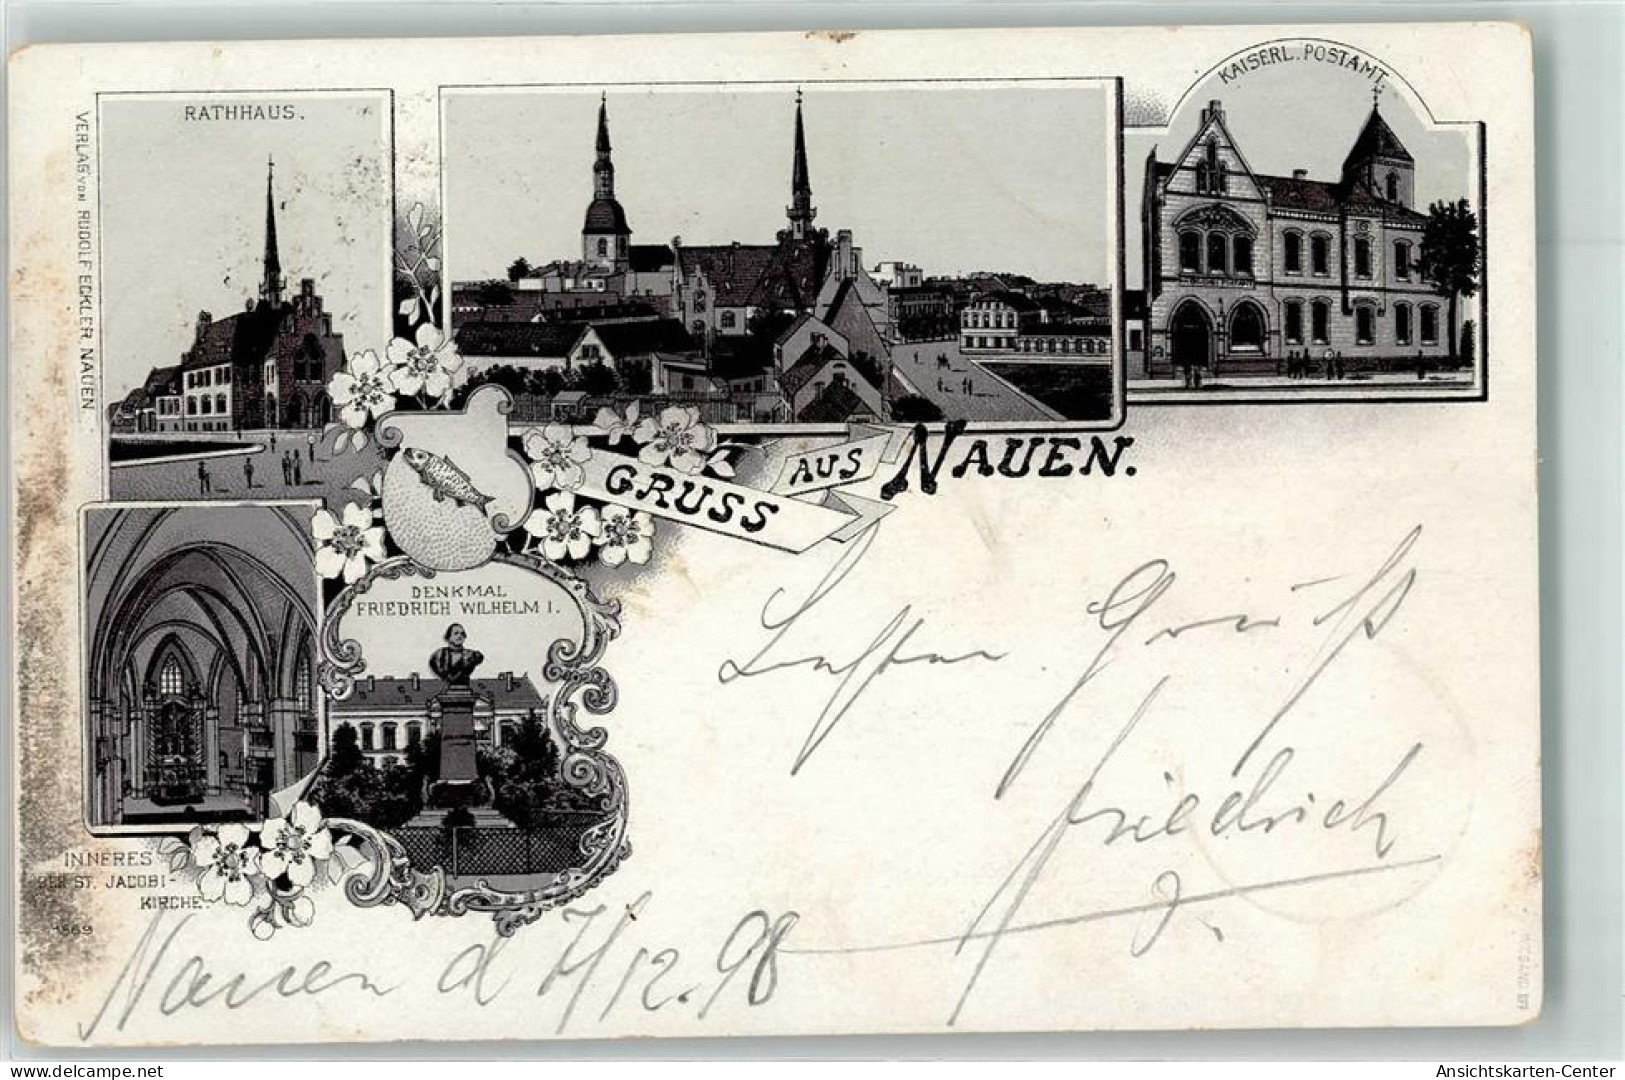 RATHHAUS.
KAISERL. POSTAMT.
VERLAG VON RUDOLF ECKLER NAUEN.
GRUSS AUS NAUEN.
DENKMAL
FRIEDRICH WILHELM I.
INNERES
DER ST. JACOBI-
KIRCHE.
1869
Besten Gruß
Friedrich
Nauen d 7/12.98
delcampe.net
Ansichtskarten-Center